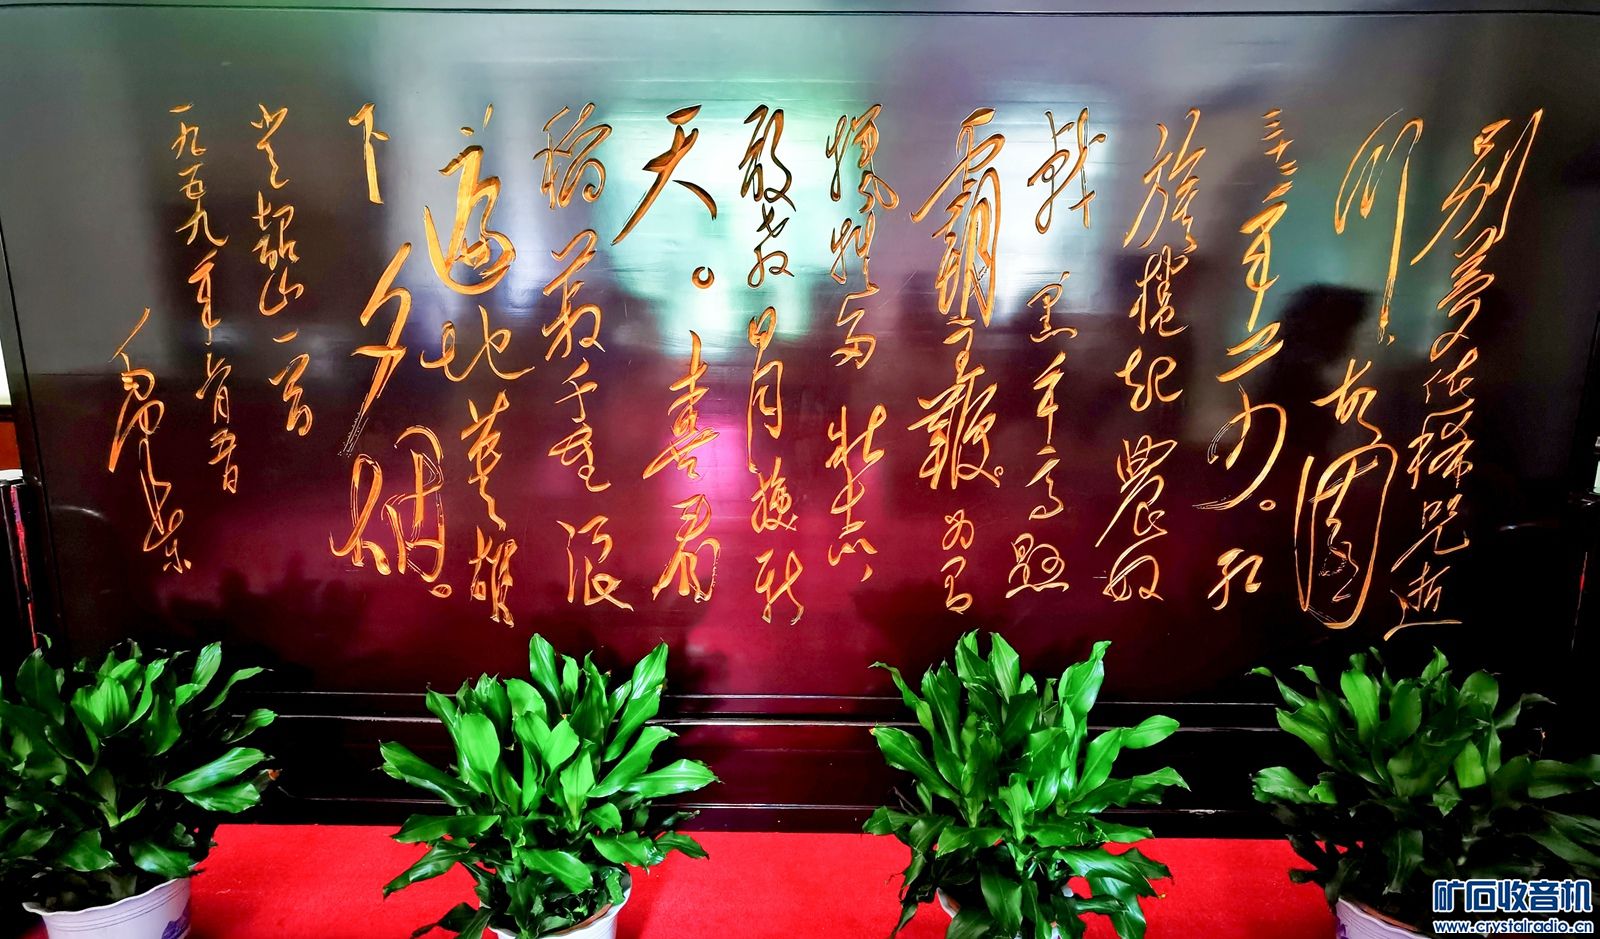 别夢依稀咒逝
川，故園
三十二年前。红
旗捲起農奴
戟黑手高懸
霸主鞭。为有
犧牲多壮志，
敢教日月换新
天。喜看
稻菽千重浪
遍地英雄
下夕烟。
韶山一首
一九五九年
毛泽东
矿石收音机
www.crystalradio.cn